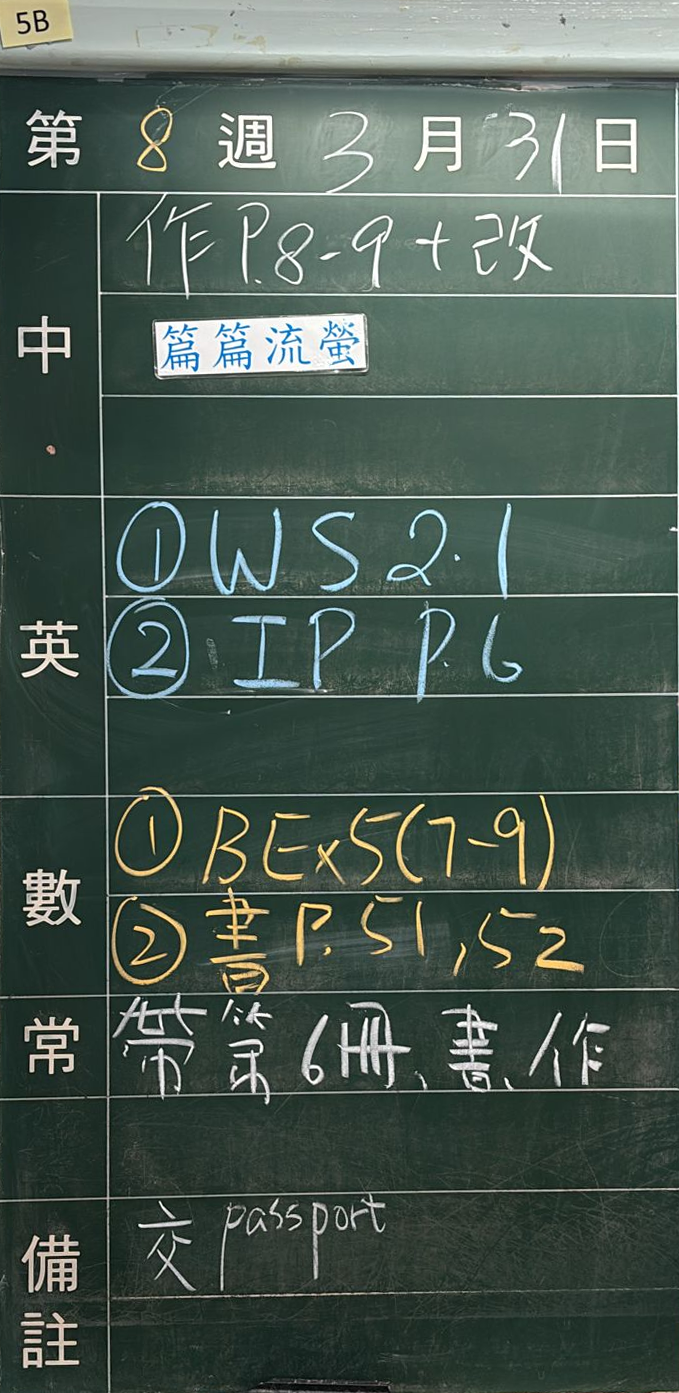 5B
第 8 週 3 月 31 日
中
作 P.8-9 + 改
篇篇流螢
英
① WS 2.1
② IP P.6
數
① BEx5(7-9)
② 書 P.51,52
常
帶第6冊、書、作
備註
交 passport